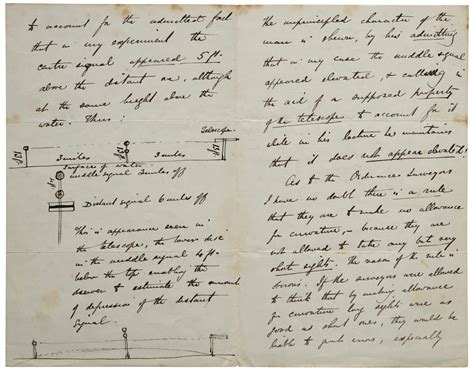 to account for the admitted fact
that in my experiment the
centre signal appeared 5 ft.
above the distant one, although
at the same height above the
water. Thus:
Telescope.
3 miles
3 miles
Surface of water
middle signal 3 miles off
Distant signal 6 miles off
This is appearance seen in
the telescope, the lower disc
in the middle signal 4 ft.
below the top enabling the
observer to estimate the amount
of depression of the distant
signal.
the unprincipled character of the
man is shewn, by his admitting
that in my case the middle signal
appeared elevated, & calling in
the aid of a supposed property
of the telescope to account for it
while in his lecture he maintains
that it does not appear elevated!
As to the Ordnance Surveyors
I have no doubt there is a rule
that they are to make no allowance
for curvature,— because they are
not allowed to take any but very
short sights. The reason of the rule is
obvious. If the surveyors were allowed
to think that by making allowance
for curvature long sights were as
good as short ones, they would be
liable to gross errors, especially